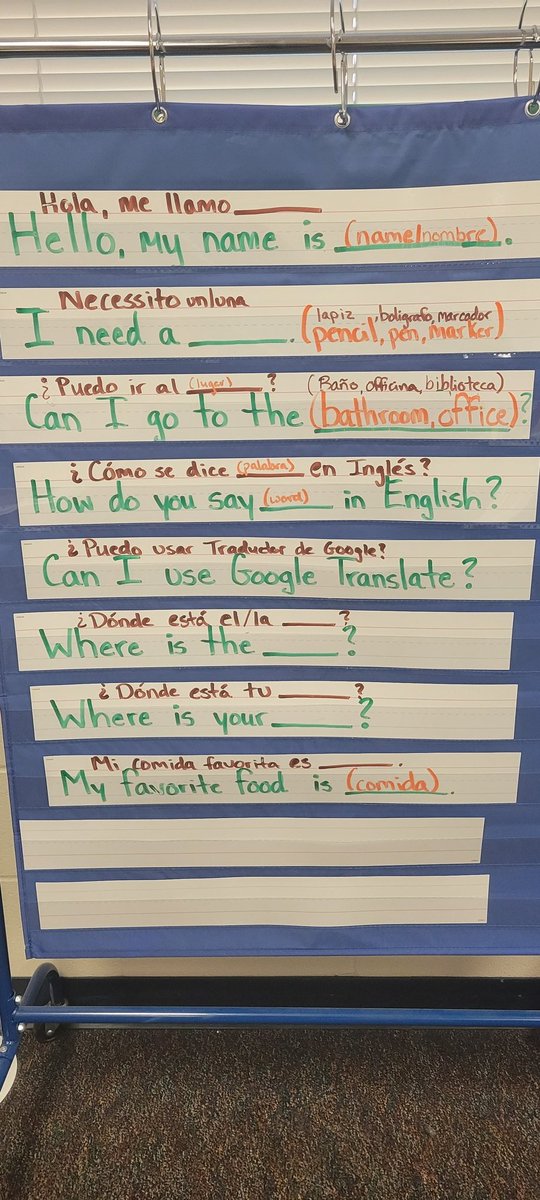 Hola, me llamo ______
Hello, my name is (name/nombre).
Necessito un/una
lapiz, boligrafo, marcador
I need a ______. (pencil, pen, marker)
¿Puedo ir al (lugar)? (Baño, officina, biblioteca)
Can I go to the (bathroom, office)?
¿Cómo se dice (palabra) en Inglés?
How do you say (word) in English?
¿Puedo usar Traductor de Google?
Can I use Google Translate?
¿Dónde está el/la ______?
Where is the ______?
¿Dónde está tu ______?
Where is your ______?
Mi comida favorita es ______.
My favorite food is (comida).